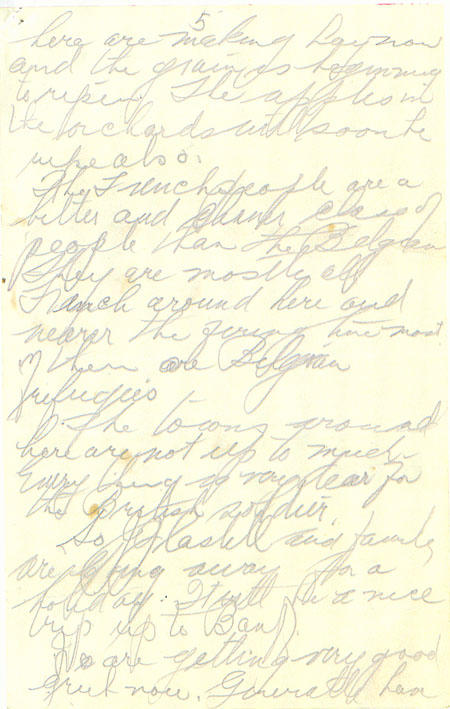 5
here are making hay now
and the grain is beginning
to ripen. The apples in
the orchards will soon be
ripe also.
The French people are a
better and cleaner class of
people than the Belgian
They are mostly all
French around here and
nearer the firing line most
of them are Belgian
refugies
The towns around
here are not up to much
Every thing is very dear for
the British soldier.
So and family
are going away for a
holiday. It will be a nice
trip up to Banf.
We are getting very good
grub now. Generally have